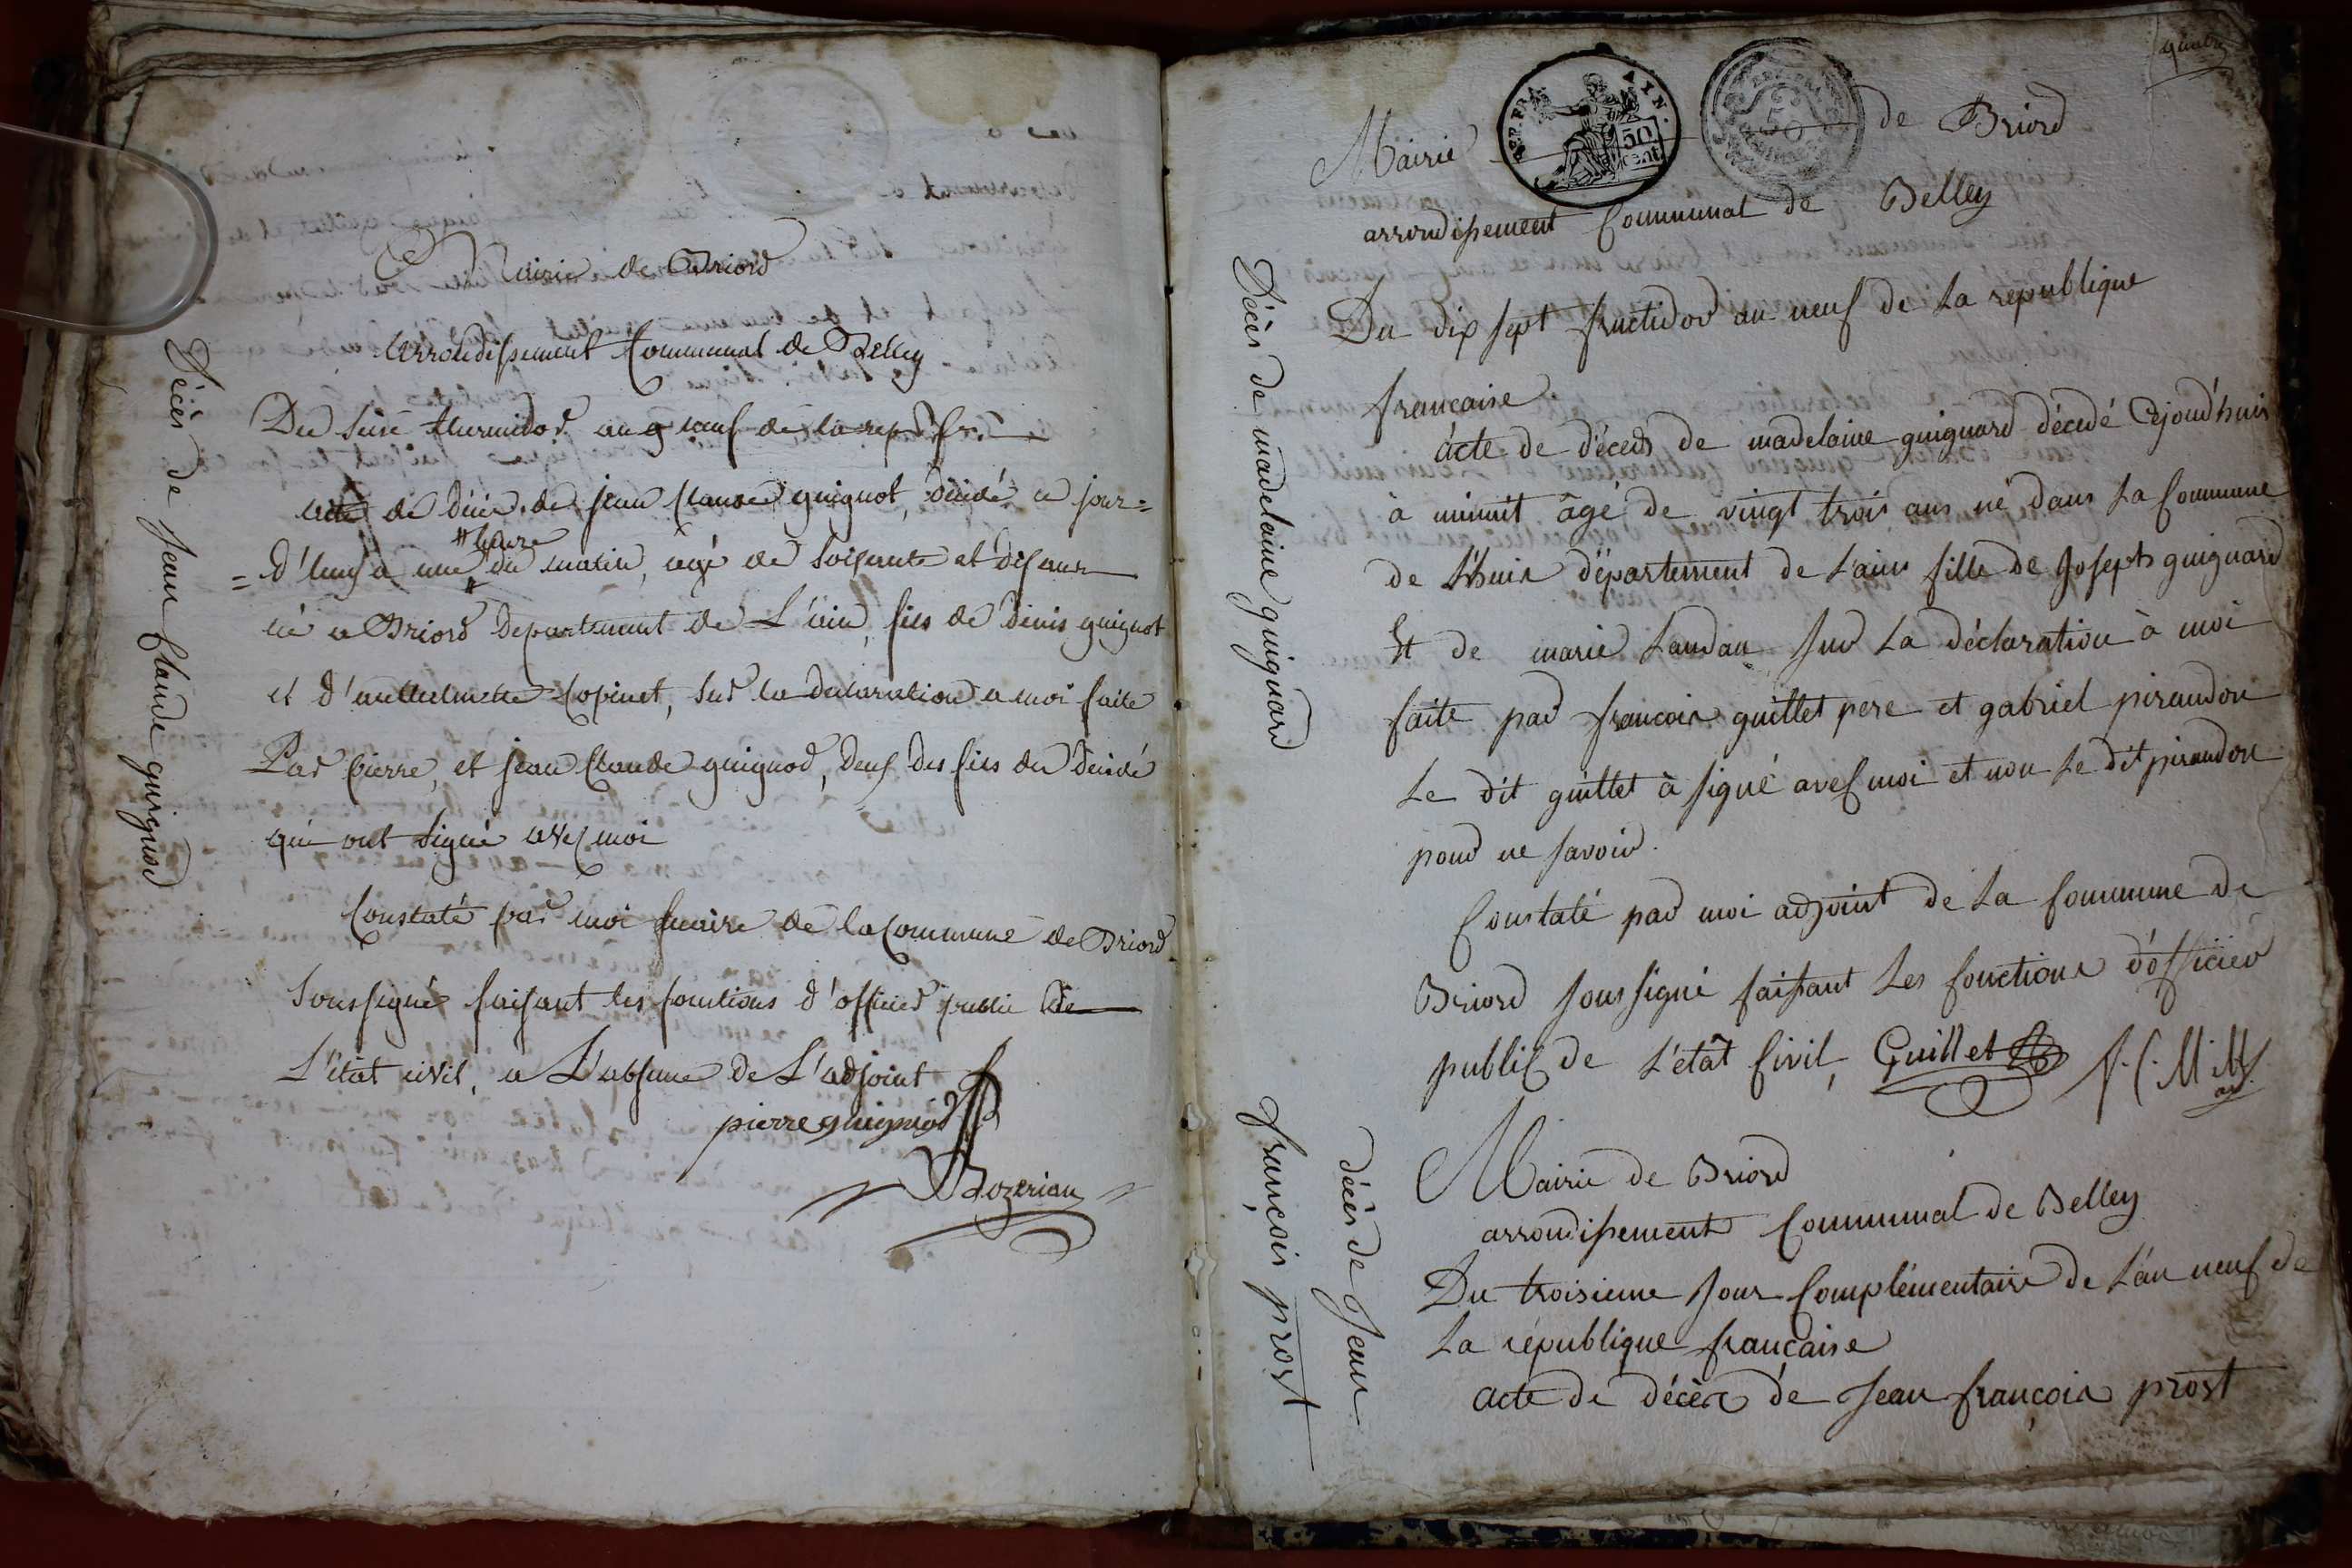 Mairie de Briord
arrondissement Communal de Belley
Du seise thermidor an 9 neuf de la rep. fr.
acte de décés de jean Claude guignot, décidé ce jour=
heure
=d'huy a une du matin, agé de soisante et dis ans
né a Briord departement de L'ain, fils de denis guignot
et d'anthelmette Copinet, sur la declaration a moi faite
Par pierre, et jean Claude guignod, deux des fils du décidé
qui ont signé avec moi
Constaté par moi maire de la Commune de Briord
soussigné faisant les fonctions d'officier public de
L'état civil, a L'absence de L'adjoint
pierre guignod
Bozerian
Décès de Jean Claude guignod
quatre
REP. FRA. AIN.
50 cent
Mairie de Briord
arrondissement Communal de Belley
Du dix sept fructidor an neuf de La republique
francaise
acte de décès de madelaine guignard décedé Cejourd'huis
à minuit âgé de vingt trois ans né dans La Commune
de L'huis département de L'ain fille de Joseph guignard
Et de marie Landan sur La déclaration à moi
faite par francois guillet pere et gabriel piraudon
Le dit guillet à signé avec moi et non Le dit piraudon
pour ne savoir.
Constaté par moi adjoint de La Commune de
Briord soussigné faisant Les fonctions d'officier
public de L'etât Civil, Guillet
Décès de madelaine guignard
Mairie de Briord
arrondissement Communal de Belley
Du troisieme Jour Complémentaire de L'an neuf de
La république française
acte de décès de Jean françois prost
décès de Jean
françois prost